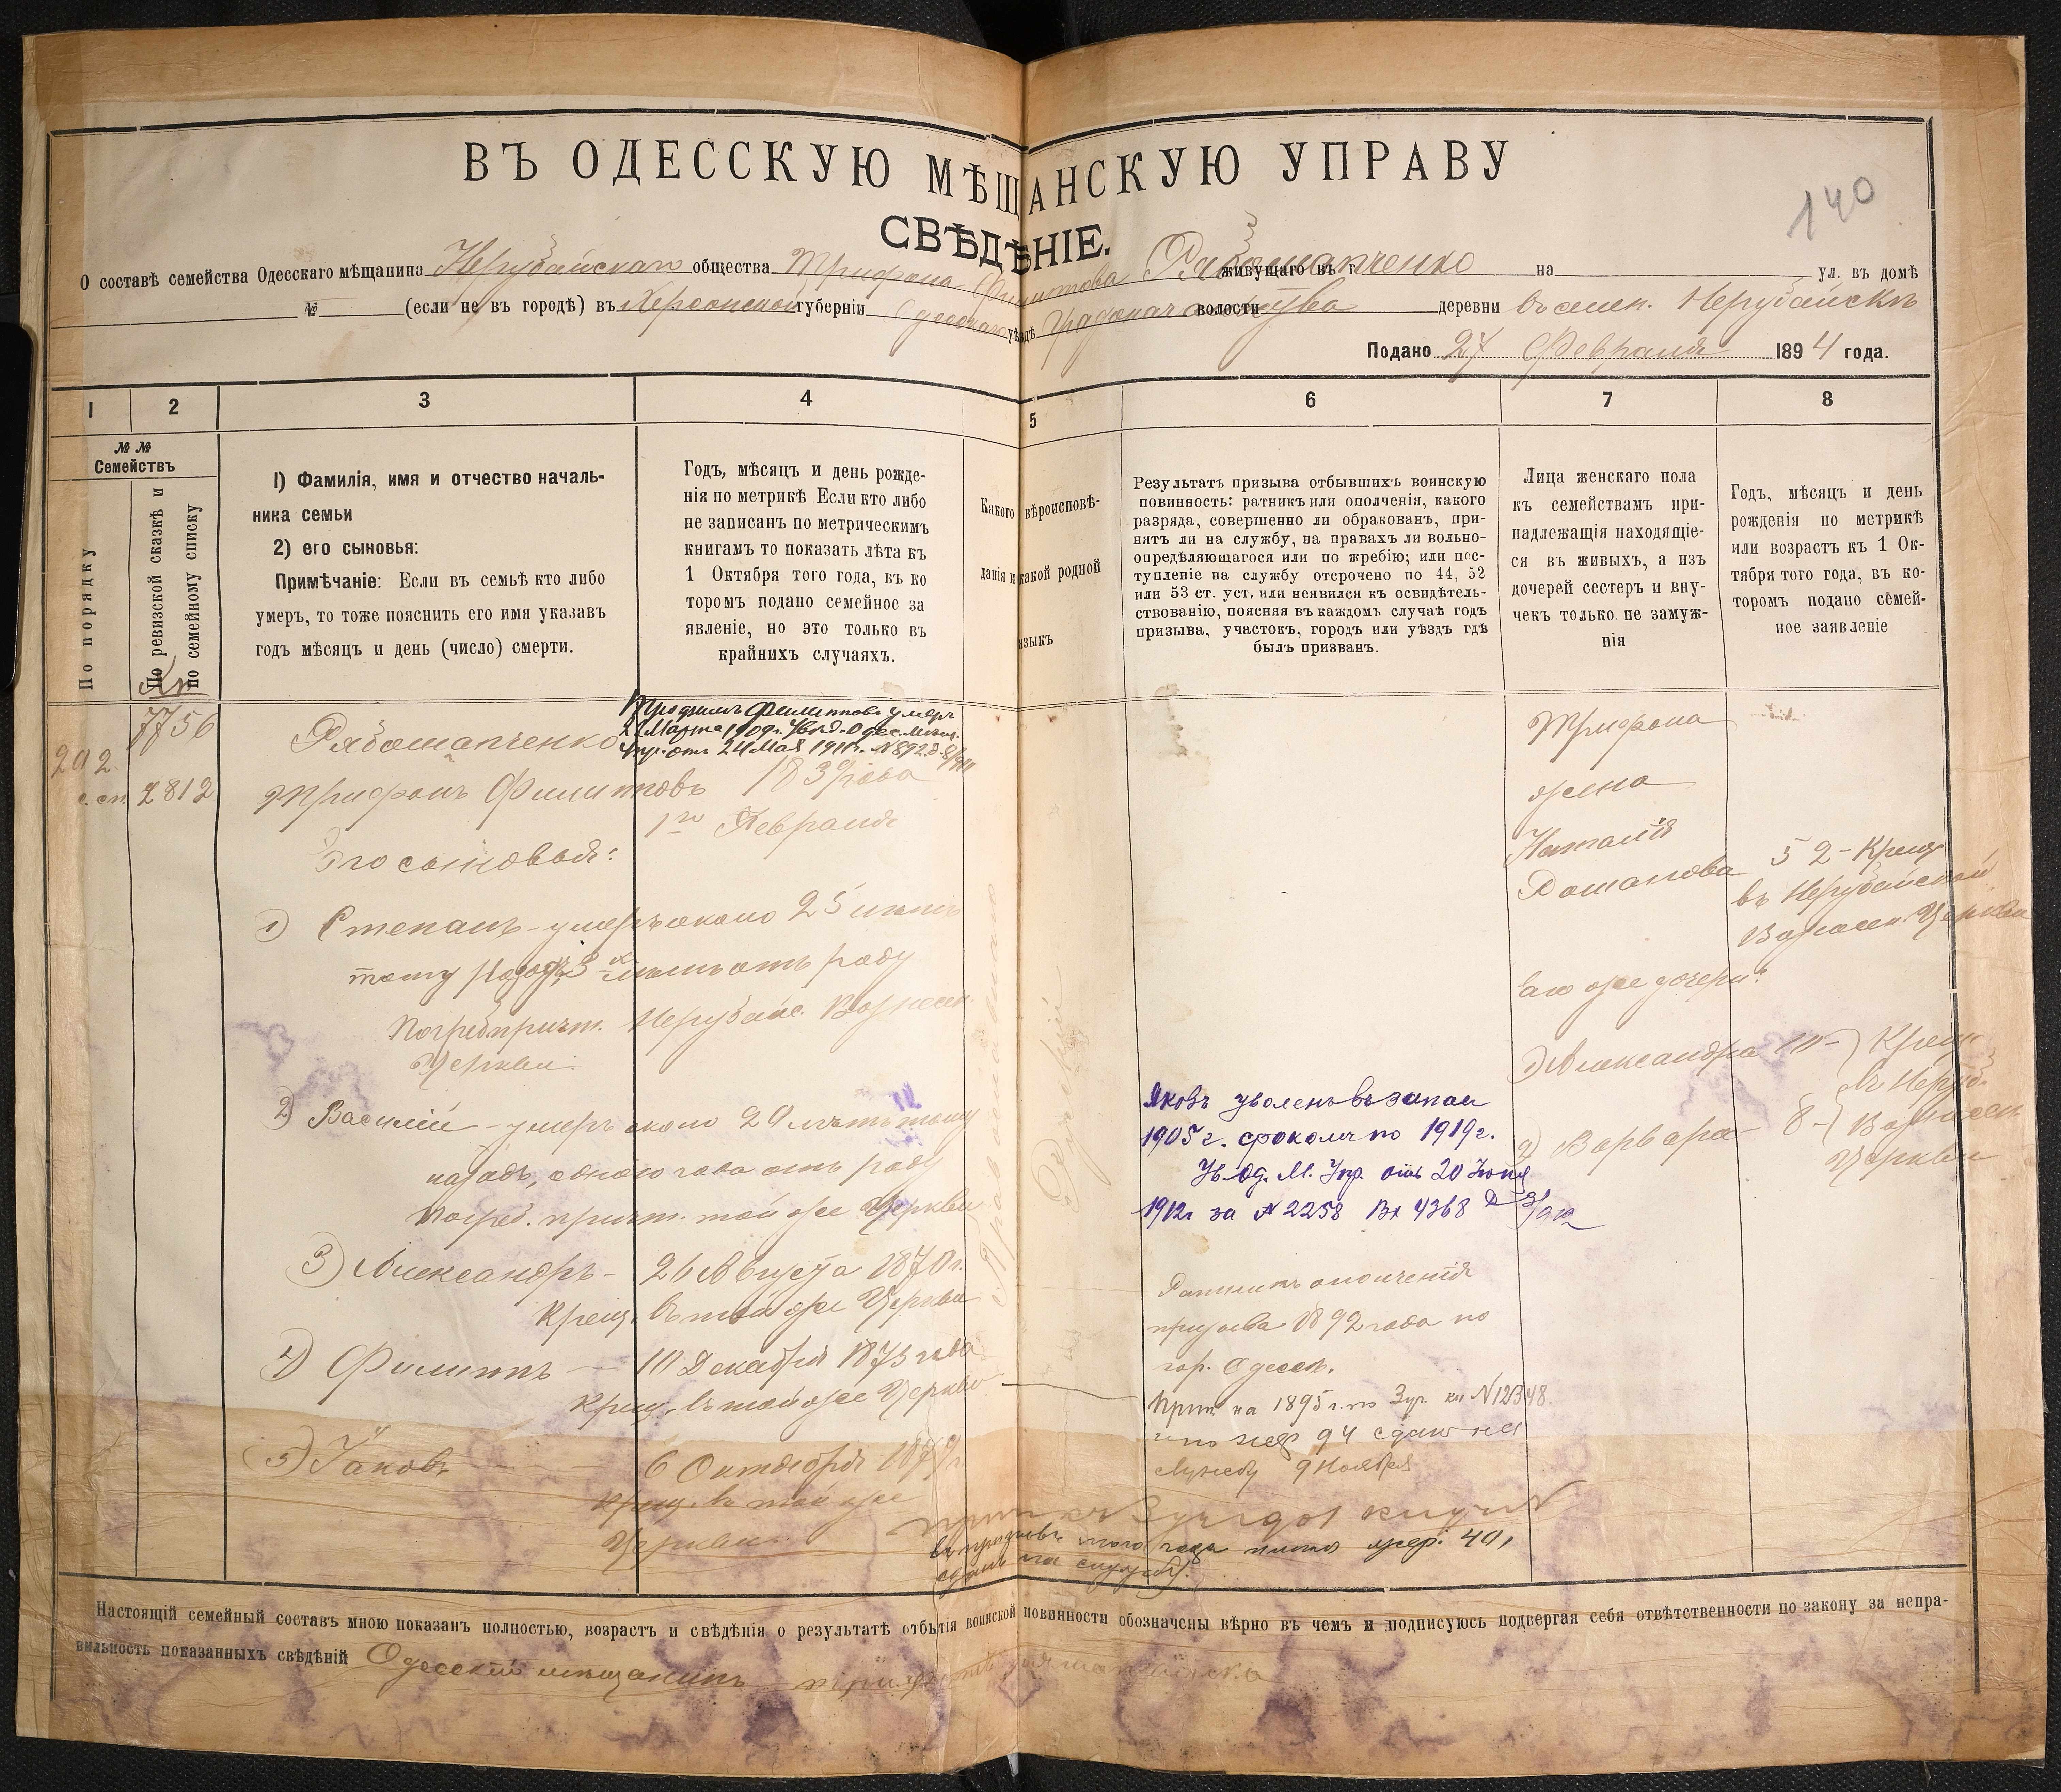 ВЪ ОДЕССКУЮ МѢЩАНСКУЮ УПРАВУ
140
СВѢДѢНІЕ.
О составѣ семейства Одесскаго мѣщанина Нерубайскаго общества Трифона Филиппова Рябошапченко живущаго въ г на ул. въ домѣ
№ (если не въ городѣ) въ Херсонской губерніи Одесскаго уѣздѣ Градоначальства волости деревни въ селен. Нерубайскѣ
Подано 27 Февраля 1894 года.
1 2 3 4 5 6 7 8
№ №
Семействъ
По порядку
По ревизской сказкѣ и
по семейному списку
1) Фамилія, имя и отчество началь-
ника семьи
2) его сыновья:
Примѣчаніе: Если въ семьѣ кто либо
умеръ, то тоже пояснить его имя указавъ
годъ мѣсяцъ и день (число) смерти.
Годъ, мѣсяцъ и день рожде-
нія по метрикѣ Если кто либо
не записанъ по метрическимъ
книгамъ то показать лѣта къ
1 Октября того года, въ ко
торомъ подано семейное за
явленіе, но это только въ
крайнихъ случаяхъ.
Какого вѣроисповѣ-
данія и какой родной
языкъ
Результатъ призыва отбывшихъ воинскую
повинность: ратникъ или ополченія, какого
разряда, совершенно ли обракованъ, при-
нятъ ли на службу, на правахъ ли вольно-
опредѣляющагося или по жребію; или пос-
тупленіе на службу отсрочено по 44, 52
или 53 ст. уст. или неявился къ освидѣтель-
ствованію, поясняя въ каждомъ случаѣ годъ
призыва, участокъ, городъ или уѣздъ гдѣ
былъ призванъ.
Лица женскаго пола
къ семействамъ при-
надлежащія находящіе-
ся въ живыхъ, а изъ
дочерей сестеръ и вну-
чекъ только не замуж-
нія
Годъ, мѣсяцъ и день
рожденія по метрикѣ
или возрастъ къ 1 Ок-
тября того года, въ ко-
торомъ подано семей-
ное заявленіе
7756
292
2812
Трифонъ Филипповъ умеръ
Марта 1909г. Увѣд. Одес. Мѣщ.
Упр. отъ 24 Мая 1911г. № 892
Рябошапченко
Трифонъ Филипповъ 1839 года
1го Февраля
Его сыновья:
1) Степанъ – умеръ около 25 лѣтъ
тому назадъ, 3-хъ лѣтъ отъ роду
Погреб. причт. Нерубайс. Вознесен.
Церкви.
2) Василій – умеръ около 29 лѣтъ тому
назадъ, одного года отъ роду
Погреб. причт. той же Церкви
3) Александръ – 26 Августа 1870г.
Крещ. въ той же Церкви
4) Филиппъ – 10 Декабря 1873 года
Крещ. въ той же Церкви
5) Іаковъ 6 Октября 1879г.
Крещ. въ той же
Церкви
Православнаго
Русскій
Яковъ уволенъ въ запас
1905 г. срокомъ по 1919г.
Ув. Од. М. Упр. отъ 20 Іюня
1912г за № 2258 Вх 4368
Ратникъ ополченія
призыва 1892 года по
гор. Одессѣ.
Прип. на 1895 г. по 3 уч. кн № 12348
и по жер 94 сданъ на
службу 9 Ноября
прип къ 3 уч 1901 книги №
въ призывъ того года вынул жер. 40,
сданъ на службу.
Трифона
жена
Наталія
Романова
52 – Крещ
въ Нерубайской
Вознесен Церкви
его же дочери:
1) Александра 10 – Крещ.
2) Варвара 8 – въ Неруб.
Вознесен
Церкви
Настоящій семейный составъ мною показанъ полностью, возрастъ и свѣдѣнія о результатѣ отбытія воинской повинности обозначены вѣрно въ чемъ и подписуюсь подвергая себя отвѣтственности по закону за непра-
вильность показанныхъ свѣдѣній Одесскій мѣщанинъ